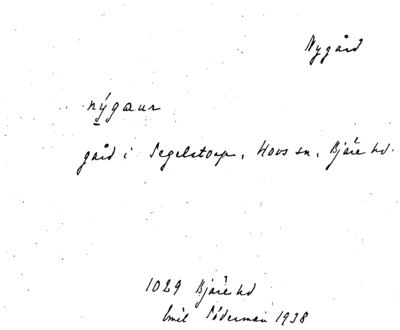 Nygård
nýgaur
gård i Segelstorp, Hovs sn, Bjäre hd.
1029 Bjäre hd
Emil Söderman 1938